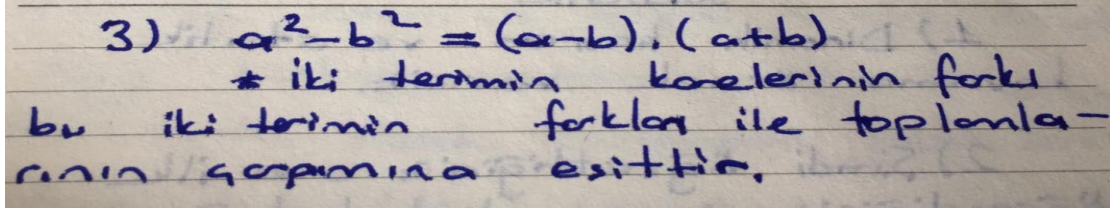 3) a²-b² = (a-b).(a+b)
* iki terimin karelerinin farkı
bu iki terimin farkları ile toplamla-
rının çarpımına eşittir.